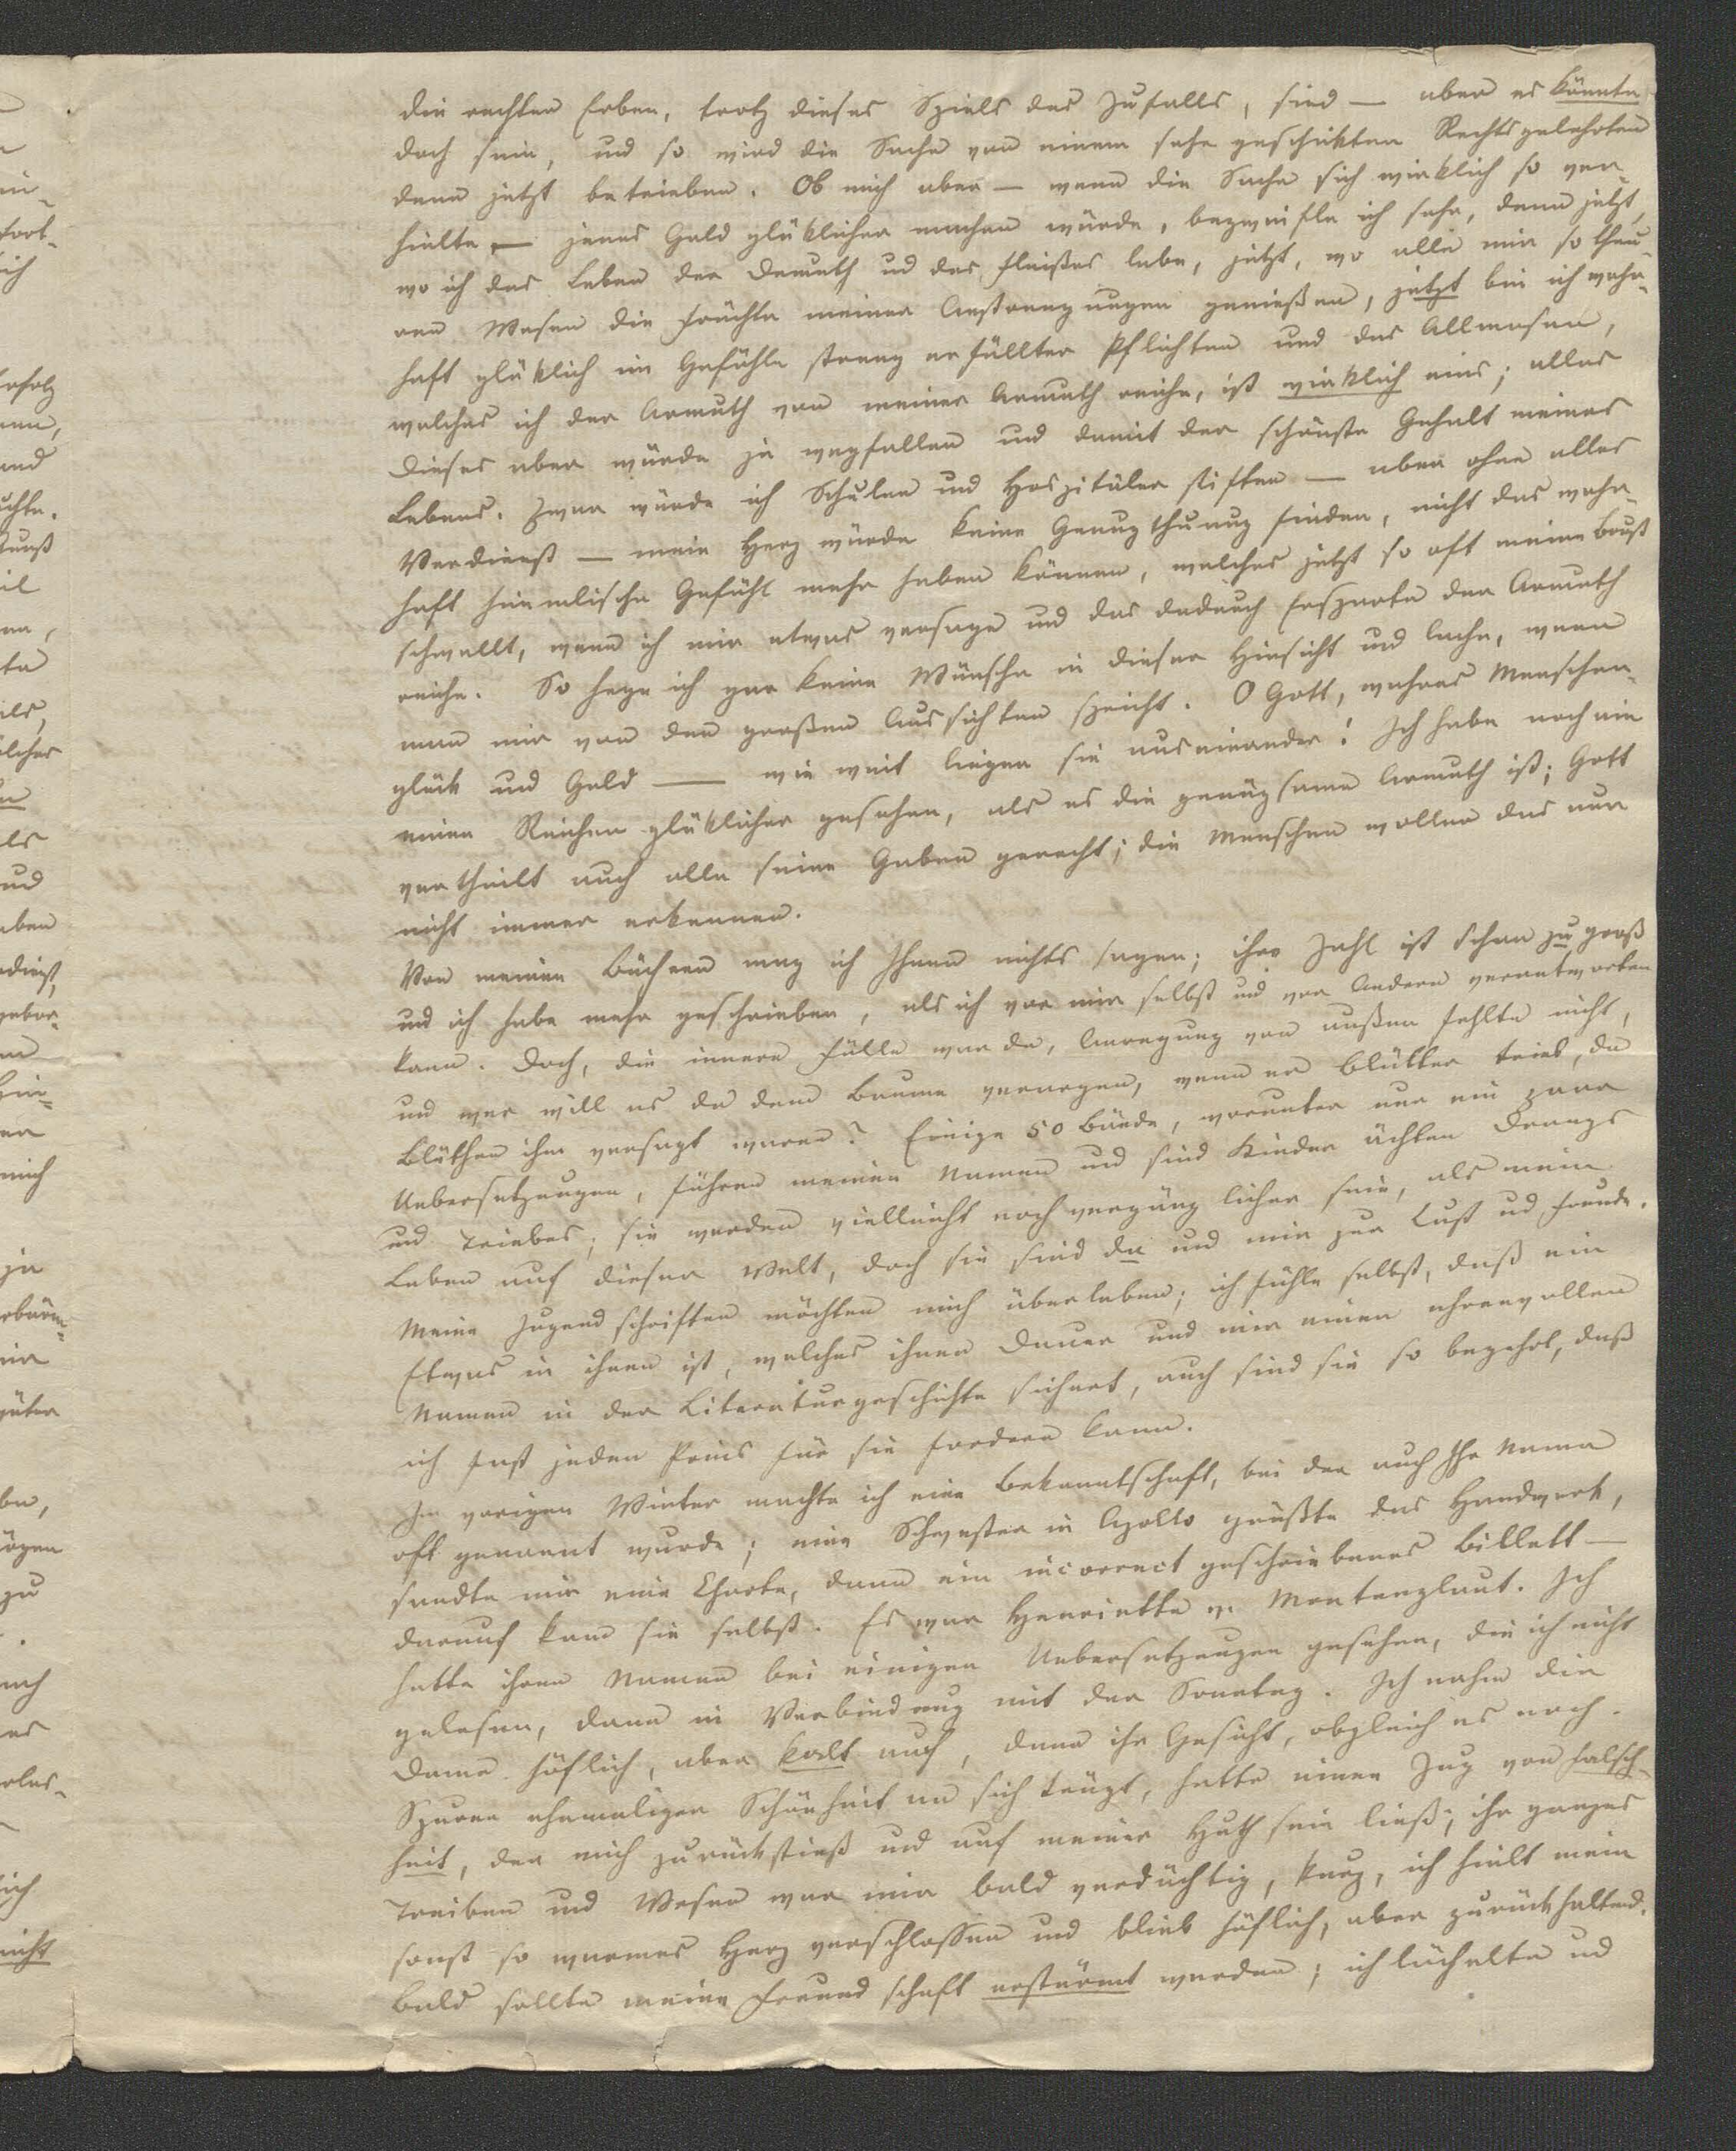 die rechten Erben, trotz dieses Spiels des Zufalls, sind — aber es könnte
doch sein, und so wird die Sache von einem sehr geschikten Rechtsgelehrten
denn jetzt betrieben. Ob mich aber — wenn die Sache sich wirklich so ver-
hielte — jenes Geld glüklicher machen würde, bezweifle ich sehr, denn jetzt,
wo ich das Leben der Demuth und des Fleißes lebe, jetzt, wo alle mir so theu-
ren Wesen die Früchte meiner Anstrengungen genießen, jetzt bin ich wahr-
haft glüklich im Gefühle streng erfüllter Pflichten und das Allmosen,
welches ich der Armuth von meiner Armuth reiche, ist wirklich eins; alles
dieses aber würde ja wegfallen und damit der schönste Gehalt meines
Lebens. Zwar würde ich Schulen und Hospitäler stiften — aber ohne alles
Verdienst — mein Herz würde keine Genugthuung finden, nicht das wahr-
haft himmlische Gefühl mehr haben können, welches jetzt so oft meine Brust
schwellt, wenn ich mir etwas versage und das dadurch Ersparte der Armuth
reiche. So hege ich gar keine Wünsche in dieser Hinsicht und lache, wenn
man mir von den großen Aussichten spricht. O Gott, wahres Menschen-
glük und Geld — wie weit liegen sie auseinander! Ich habe noch nie
einen Reichen glüklicher gesehen, als es die genügsame Armuth ist; Gott
vertheilt auch alle seine Gaben gerecht; die Menschen wollen das nur
nicht immer erkennen.
Von meinen Büchern mag ich Ihnen nichts sagen; ihre Zahl ist schon zu groß
und ich habe mehr geschrieben, als ich vor mir selbst und vor Andern verantworten
kann. Doch, die innere Fülle war da, Anregung von außen fehlte nicht,
und wer will es da dem Baume verargen, wenn er Blätter trieb, da
Blüthen ihm versagt waren? Einige 50 Bände, worunter nur ein paar
Uebersetzungen, führen meinen Namen und sind Kinder ächten Drangs
und Triebes; sie werden vielleicht noch vergänglicher sein, als mein
Leben auf dieser Welt, doch sie sind da und mir zur Lust und Freude.
Meine Jugendschriften möchten mich überleben; ich fühle selbst, daß ein
Etwas in ihnen ist, welches ihnen Dauer und mir einen ehrenvollen
Namen in der Literaturgeschichte sichert, auch sind sie so begehrt, daß
ich fast jeden Preis für sie fordern kann.
Im vorigen Winter machte ich eine Bekanntschaft, bei der auch Ihr Name
oft genannt wurde; eine Schwester in Apollo grüßte das Handwerk,
sandte mir eine Charte, dann ein incorrect geschriebenes Billett —
darauf kam sie selbst. Es war Henriette v. Montenglaut. Ich
hatte ihren Namen bei einigen Uebersetzungen gesehen, die ich nicht
gelesen, dann in Verbindung mit der Sonntag. Ich nahm die
Dame höflich, aber kalt auf, denn ihr Gesicht, obgleich es noch
Spuren ehemaliger Schönheit an sich trägt, hatte einen Zug von Falsch-
heit, der mich zurückstieß und auf meiner Huth sein ließ; ihr ganzes
Treiben und Wesen war mir bald verdächtig, kurz, ich hielt mein
sonst so warmes Herz verschlossen und blieb höflich, aber zurückhaltend.
Bald sollte meine Freundschaft erstürmt werden; ich lächelte und